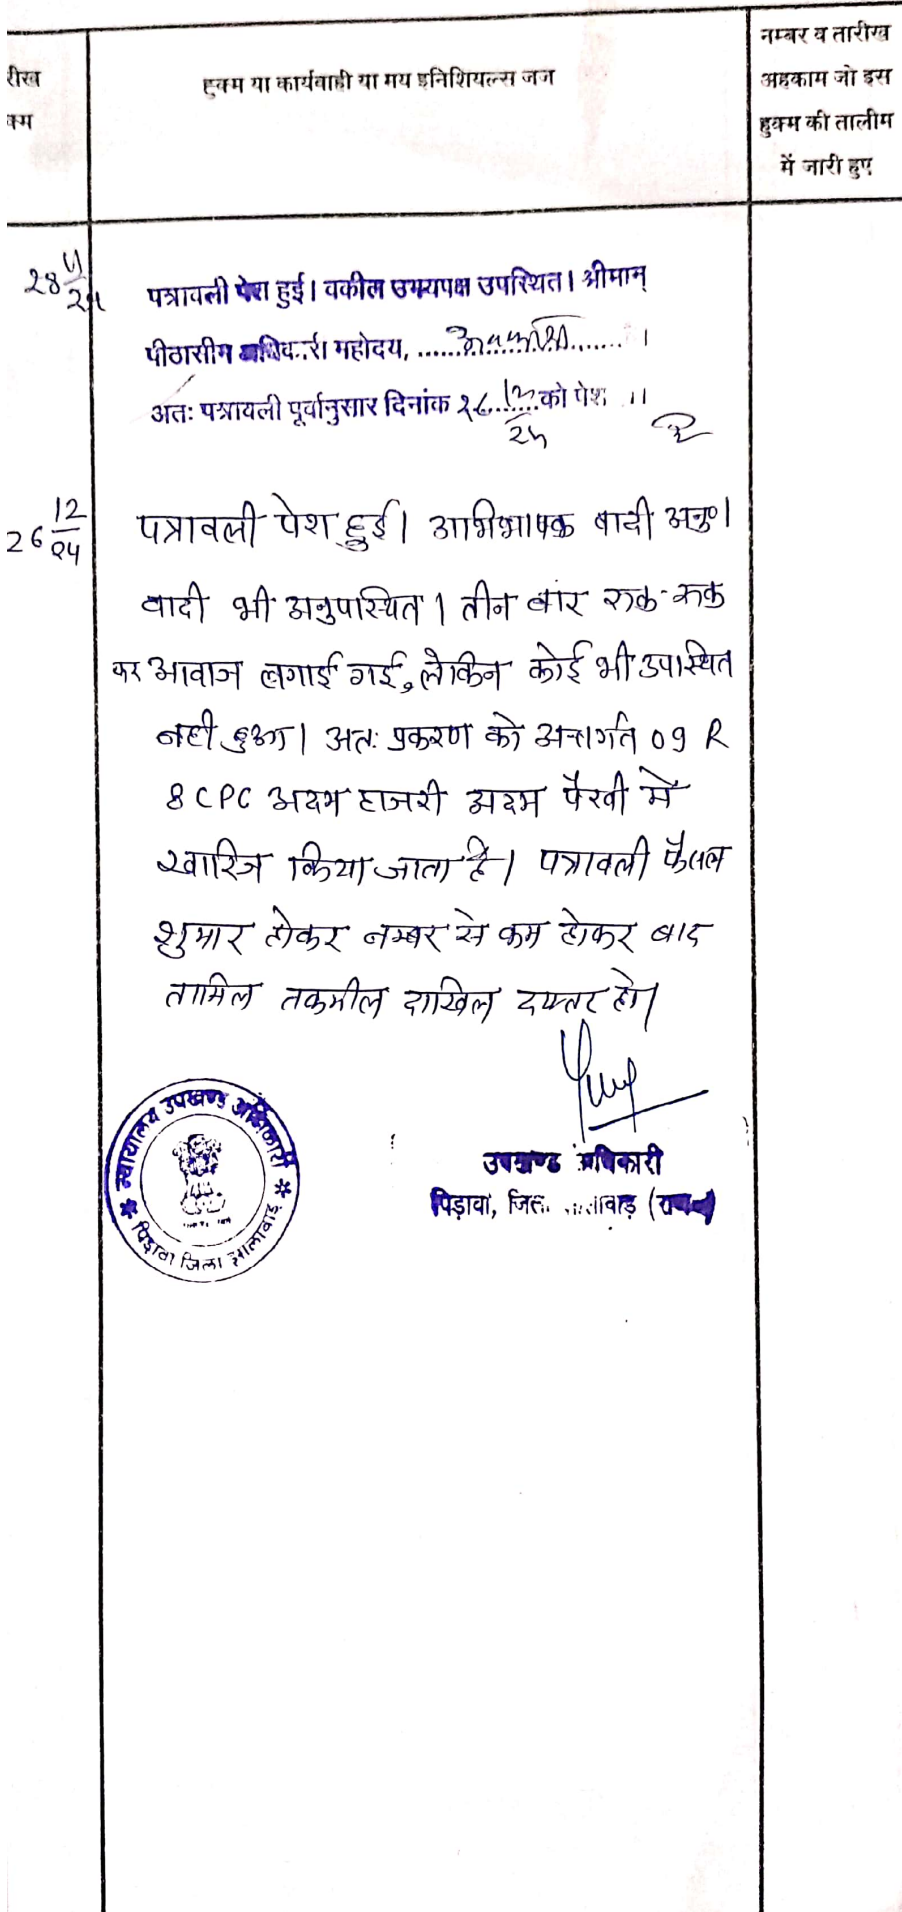 रीख
क्म
हुक्म या कार्यवाही या मय इनिशियल्स जज
नम्बर व तारीख
अहकाम जो इस
हुक्म की तालीम
में जारी हुए
28
पत्रावली पेश हुई। वकील उभयपक्ष उपस्थित। श्रीमान्
पीठासीन अधिकारी महोदय, ............ ।
अतः पत्रावली पूर्वानुसार दिनांक 26 12/24 को पेश ।।
26 12/24
पत्रावली पेश हुई। अभिभाषक वादी अनु०।
वादी भी अनुपस्थित। तीन बार रुक-रुक
कर आवाज लगाई गई, लेकिन कोई भी उपस्थित
नही हुआ। अतः प्रकरण को अन्तर्गत O9 R
8 CPC अदम हाजरी अदम पैरवी में
खारिज किया जाता है। पत्रावली फैसल
शुमार होकर नम्बर से कम होकर बाद
तामिल तकमील दाखिल दफ्तर हो।
उपखण्ड अधिकारी
पिड़ावा,
न्यायालय उपखण्ड अधिकारी
पिडावा जिला झालावाड़